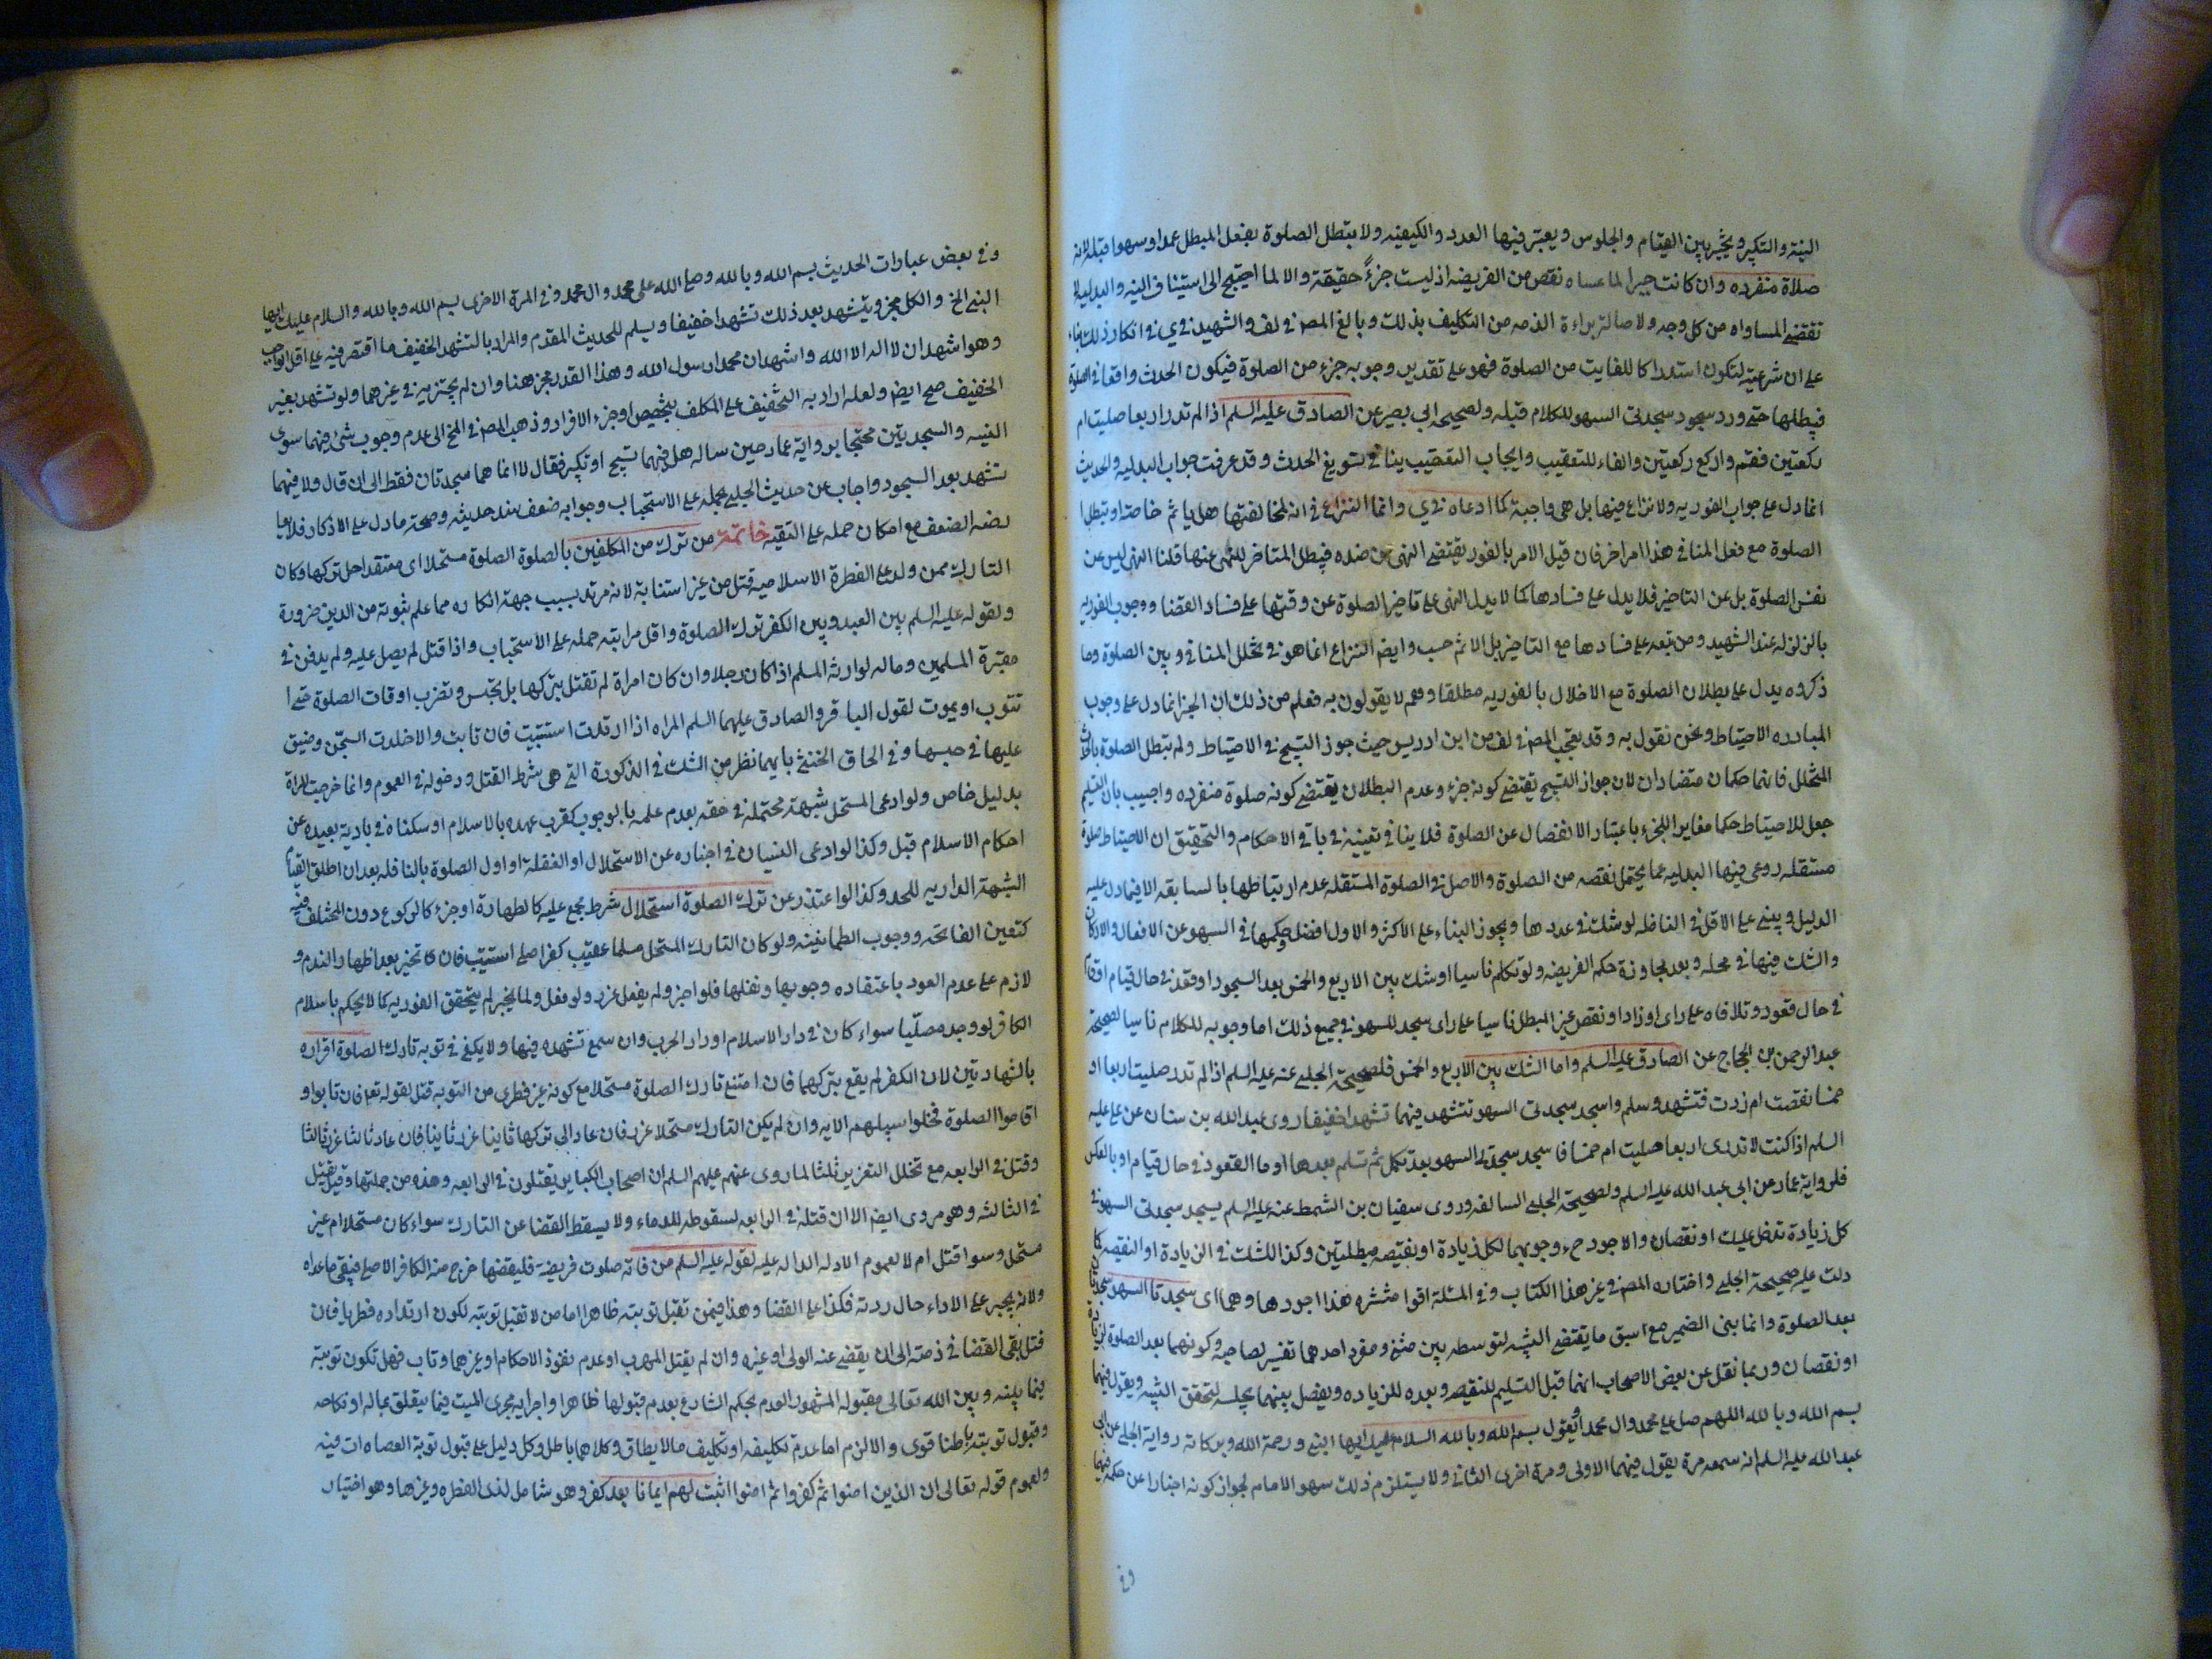 النية والتكبير ويخير بين القيام والجلوس ويعتبر فيها العدد والكيفيه ولا يبطل الصلوة بفعل المبطل عمدا وسهوا قبله لانه
صلاة منفرده وان كانت جبرا لما عساه نقص من الفريضه اذ ليست جزءً حقيقة والا لما احتيج الى استيناف النيه والبدلية لا
تقتضي المساواه من كل وجه ولاصالة براءة الذمه من التكليف بذلك وبالغ المصر في لف والشهيد في ي في انكار ذلك بناء
على ان شرعيته لتكون استدراكا للفايت من الصلوة فهو على تقدير وجوبه جزء من الصلوة فيكون الحدث واقعا في الصلوة
فيبطلها حتى ورد سجود سجدتى السهو للكلام قبله ولصحيحه ابي بصير عن الصادق عليه السلم اذا لم تدر اربعا صليت ام
ركعتين فقم واركع ركعتين والفاء للتعقيب وايجاب التعقيب ينافي تسويغ الحدث وقد عرفت جواب البدليه والحديث
انما دل على جواب الفوريه ولا نزاع فيها بل هي واجبة كما ادعاه في ي وانما النزاع في انه لمخالفتها هل ياثم خاصة او تبطل
الصلوة مع فعل المنافي هذا امر اخر فان قيل الامر بالفور يقتضي النهى عن ضده فيبطل المتاخر للنهى عنها قلنا النهى ليس عن
نفس الصلوة بل عن التاخير فلا يدل على فسادها كما لا يدل النهى على تاخير الصلوة عن وقتها على فساد القضا ووجوب الفوريه
بالزلزله عند الشهيد ومن تبعه على فسادها مع التاخير بل الاثم حسب وايضا النزاع انما هو في تخلل المنافي وبين الصلوة وما
ذكروه يدل على بطلان الصلوة مع الاخلال بالفوريه مطلقا وهم لا يقولون به فعلم من ذلك ان الخبر انما دل على وجوب
المبادره الاحتياط ونحن نقول به وقد تعجب المصر في لف من ابن ادريس حيث جوز التسبيح في الاحتياط ولم تبطل الصلوة بالحدث
المتخلل فانهما حكمان متضادان لان جواز التسبيح يقتضي كونه جزء وعدم البطلان يقتضي كونه صلوة منفرده واجيب بان التسليم
جعل للاحتياط حكما مغايرا للجزء باعتبار الانفصال عن الصلوة فلا ينافي تعيينه في باقي الاحكام والتحقيق ان الاحتياط صلوة
مستقله روعى فيها البدليه عما يحتمل نقصه من الصلوة والاصل في الصلوة المستقله عدم ارتباطها بالسابقه الا فيما دل عليه
الدليل ويبني على الاقل في النافله لو شك في عددها ويجوز البناء على الاكثر والاول افضل وحكمها في السهو عن الافعال والاركان
والشك فيها في محله وبعد مجاوزة حكم الفريضه ولو تكلم ناسيا او شك بين الاربع والخمس بعد السجود او قعد في حال قيام او قام
في حال قعود وتلافاه على راى او زاد او نقص غير المبطل ناسيا على راى سجد للسهو في جميع ذلك اما وجوبه للكلام ناسيا لصحيحة
عبد الرحمن بن الحجاج عن الصادق عليه السلم واما الشك بين الاربع والخمس فلصحيحة الحلبي عنه عليه السلم اذا لم تدر صليت اربعا او
خمسا نقصت ام زدت فتشهد وسلم واسجد سجدتى السهو تتشهد فيهما تشهدا خفيفا روى عبد الله بن سنان عن عليه
السلم اذا كنت لا تدرى اربعا صليت ام خمسا فاسجد سجدتى السهو بعد تسليمك ثم تسلم بعدها او ما القعود في حال قيام او بالعكس
فلرواية عمار عن ابى عبد الله عليه السلم ولصحيحة الحلبي السالفه وروى سفيان بن السمط عنه عليه السلم يسجد سجدتى السهو في
كل زيادة تدخل عليك او نقصان والاجود ح وجوبهما لكل زيادة او نقيصه مبطلتين وكذا الشك في الزيادة او النقيصه كما
دلت عليه صحيحة الحلبي واختاره المصر في غير هذا الكتاب وفي المسئلة اقوا منتشره هذا اجودها وهما اى سجدتا السهو سجدتان
بعد الصلوة وانما بنى الضمير مع اسبق ما يقتضي التثنيه لتوسطه بين مثنى ومفرد احدهما تفسير لصاحبه وكونهما بعد الصلوة لزيادة
او نقصان وربما نقل عن بعض الاصحاب انهما قبل التسليم للنقيصه وبعده للزياده ويفصل بينهما بجلسه لتحقق التثنيه ويقول فيهما
بسم الله وبالله اللهم صل على محمد وال محمد او يقول بسم الله وبالله السلام عليك ايها النبي ورحمة الله وبركاته رواية الحلبي عن ابى
عبد الله عليه السلم انه سمعه مرة يقول فيهما الاولى ومرة اخرى الثانى ولا يستلزم ذلك سهو الامام لجواز كونه اخبارا عن حكمه فيهما
وفي
وفي بعض عبارات الحديث بسم الله وبالله وصلى الله على محمد وال محمد وفي المرة الاخرى بسم الله وبالله والسلام عليك ايها
النبي الخ والكل مجز ويتشهد بعد ذلك تشهدا خفيفا ويسلم للحديث المقدم والمراد بالتشهد الخفيف ما اقتصر فيه على اقل الواجب
وهو اشهد ان لا اله الا الله واشهد ان محمدا رسول الله وهذا القدر مجز هنا وان لم يجتز به في غيرهما ولو تشهد بغير
الخفيف صح ايض ولعله اراد به التخفيف على المكلف بتخصيص اوجزء الافراد وذهب المصر في المخ الى عدم وجوب شئ فيهما سوى
النيه والسجدتين محتجا برواية عمار حين ساله هل فيهما تسبيح او تكبير فقال لا انما هما سجدتان فقط الى ان قال ولا فيهما
تشهد بعد السجود واجاب عن حديث الحلبي بحمله على الاستحباب وجوابه ضعف سند حديثه وصحة ما دل على الاذكار فلا
لضه الضعف مع امكان حمله على التقيه خاتمة من ترك من المكلفين بالصلوة الصلوة مستحلا اى معتقدا حل تركها وكان
التارك ممن ولد على الفطرة الاسلاميه قتل من غير استتابة لانه مرتد بسبب جهة انكاره مما علم ثبوته من الدين ضرورة
ولقوله عليه السلم بين العبد وبين الكفر ترك الصلوة واقل مراتبه حمله على الاستحباب واذا قتل لم يصل عليه ولم يدفن في
مقبرة المسلمين وماله لوارثه المسلم اذا كان رجلا وان كان امراة لم تقتل بتركها بل تحبس وتضرب اوقات الصلوة حتى
تتوب او يموت لقول الباقر والصادق عليهما السلم المراه اذا ارتدت استتيبت فان تابت والا خلدت السجن وضيق
عليها في حبسها وفي الحاق الخنثى بايهما نظر من الشك في الذكورة التي هى شرط القتل ودخوله في العموم وانما خرجت المراة
بدليل خاص ولو ادعى المستحل شبهة محتمله في حقه بعدم علمه بالوجوب كقرب عهده بالاسلام او سكناه في بادية بعيده عن
احكام الاسلام قبل وكذا لو ادعى النسيان في اخباره عن الاستحلال او الغفلة او اول الصلوة بالنافله بعد ان اطلق لقيام
الشبهة الداريه للحد وكذا لو اعتذر عن ترك الصلوة استحلال شرط مجمع عليه كالطهارة او جزء كالركوع دون المختلف فيه
كتعين الفاتحه ووجوب الطمانينه ولو كان التارك المستحل مسلما عقيب كفر اصلى استتيب فان يخير بعد اظهار الندم و
لازم على عدم العود باعتقاده وجوبها وتفلها فلو اخبر ولم يفعل عزر ولو فعل ولما يخبر لم يتحقق الفوريه كما لا يحكم باسلام
الكافر لو وجد مصليا سواء كان في دار الاسلام او دار الحرب وان سمع تشهده فيها ولا يكفي في توبة تارك الصلوة اقراره
بالشهادتين لان الكفر لم يقع بتركهما فان امتنع تارك الصلوة مستحلا مع كونه غير فطرى من التوبه قتل لقوله تعم فان تابوا و
اقاموا الصلوة فخلوا سبيلهم الايه وان لم يكن التارك مستحلا عزر فان عاد الى تركها ثانيا عزر ثانيا فان عاد ثالثا عزر ثالثا
وقتل في الرابعه مع تخلل التعزير ثلثا لما روى عنهم عليهم السلم ان اصحاب الكباير يقتلون في الرابعه وهذه من جملتها وقيل يقتل
في الثالثه وهو مروى ايض الا ان قتله في الرابعه لسقوطه للدماء ولا يسقط القضا عن التارك سواء كان مستحلا ام غير
مستحل وسوا قتل ام لا لعموم الادله الداله عليه لقوله عليه السلم من فاته صلوت فريضة فليقضها خرج منه الكافر الاصلى فيبقى ما عداه
ولانه يجبر على الاداء حال ردته فكذا على القضا وهذا فيمن تقبل توبته ظاهرا اما من لا تقبل توبته لكون ارتداده فطريا فان
قتل بقى القضا في ذمته الى ان يقضى عنه الولى او غيره وان لم يقتل لهرب او عدم نفوذ الاحكام او غيرهما وتاب فهل تكون توبته
فيما بينه وبين الله تعالى مقبوله المشهور العدم بحكم الشارع بعدم قبولها ظاهرا واجرايه مجرى الميت فيما يتعلق بماله او نكاحه
وقبول توبته باطنا قوى والا لزم اما عدم تكليفه او تكليف ما لا يطاق وكلاهما باطل وكل دليل على قبول توبة العصاه ات فيه
ولعموم قوله تعالى ان الذين امنوا ثم كفروا ثم امنوا اثبت لهم ايمانا بعد كفر وهو شامل لذى الفطره وغيرها وهو اختيار